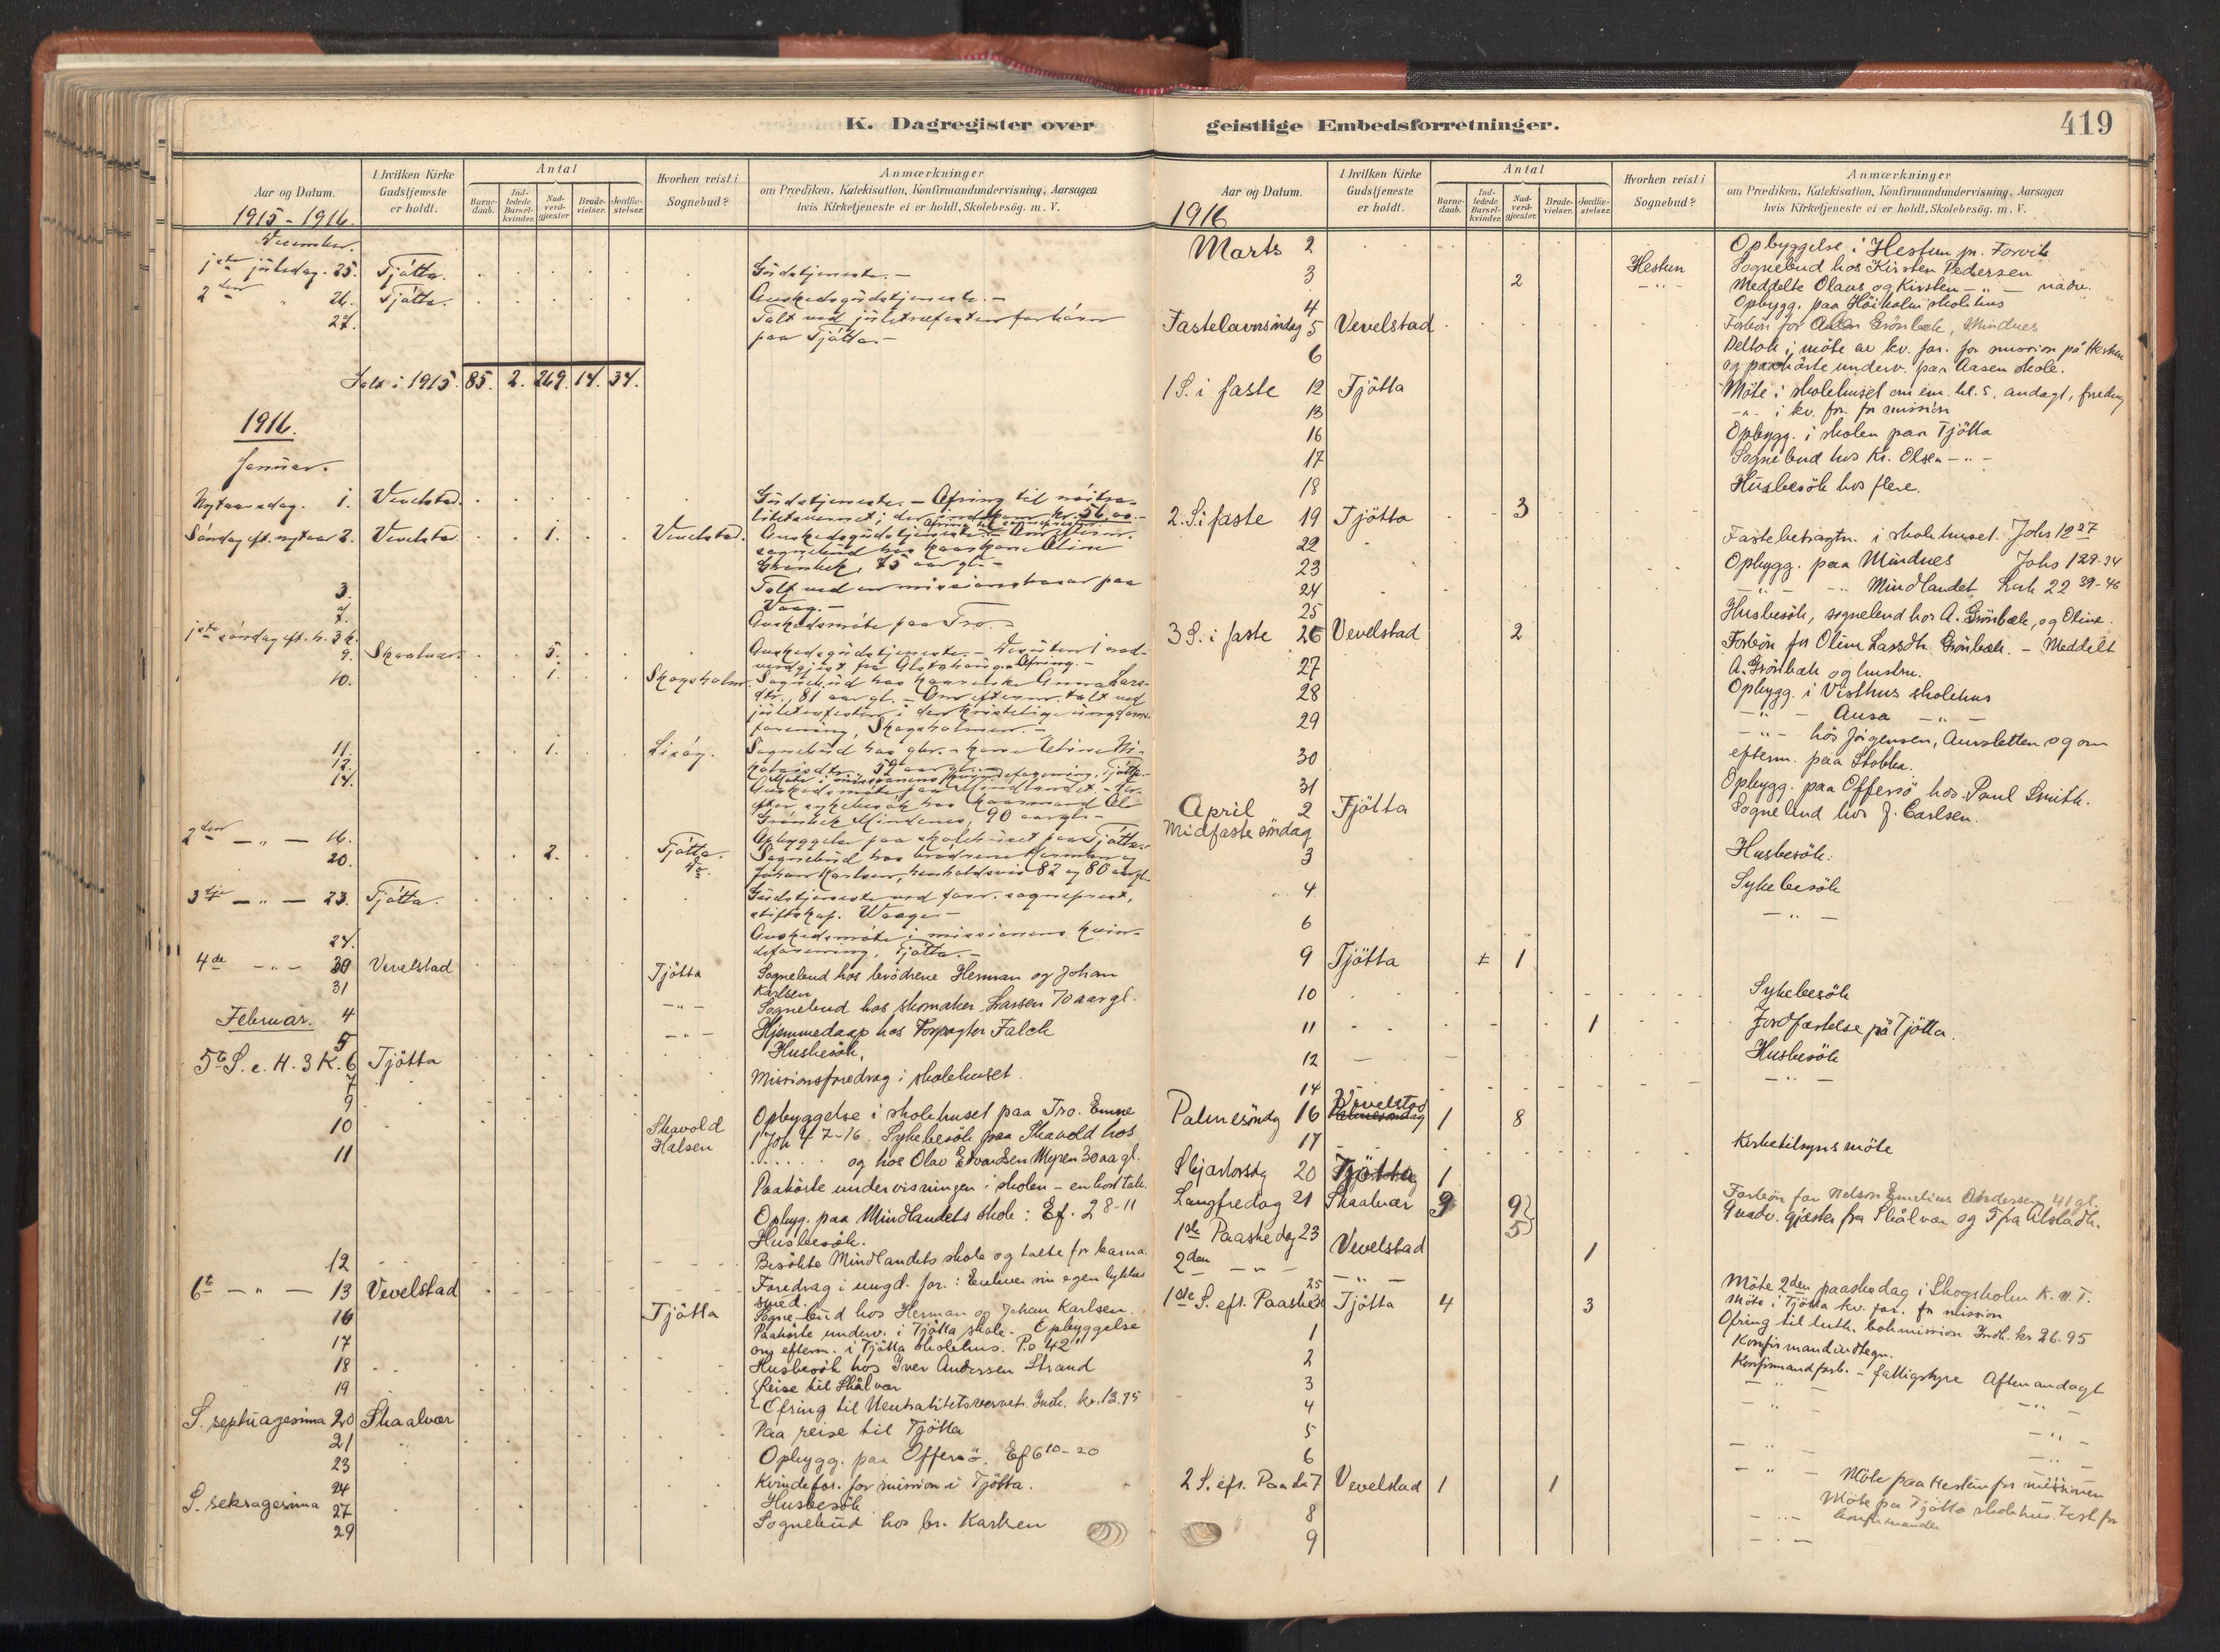 K. Dagregister over
Aar og Datum.
I hvilken Kirke Gudstjeneste er holdt.
Antal
Barne-daab.
Ind-ledede Barsel-kvinder.
Nad-verd-gjester
Brude-vielser.
Jordfæ-stelser.
Hvorhen reist i Sognebud?
Anmærkninger
om Prædiken, Katekisation, Konfirmandundervisning, Aarsagen
hvis Kirketjeneste ei er holdt, Skolebesög. m. V.
1915 - 1916.
December.
1ste juledag. 25. Tjøtta. Gudstjeneste. -
2den " 26. Tjøtta. Avskedsgudstjeneste. -
27. Talt ved juletræfesten for børn
paa Tjøtta. -
Ialt i 1915. 85. 2. 269. 14. 34.
1916.
Januar.
Nytaarsdag. 1. Vevelstad. Gudstjeneste. - Ofring til nøitra-
litetsvernet; der indkom kr. 56,00. -
Søndag eft. nytaar 2. Vevelstad. 1. Vevelstad. Avskedsgudstjeneste. -
sognebud hos Oline
Grønbek, 75 aar gl. -
3. Talt ved en missionsbasar paa
Vaag. -
7. Avskedsmøte paa Tro. -
1ste søndag eft. h. 3 k.
9. Skaalvær. 5. Avskedsgudstjeneste. - Desuten 1 nad-
verdgjest fra Alstahaug. Ofring. -
10. 1. Skogsholm. Sognebud hos Anna Lars-
dtr., 81 aar gl. - Om efterm. talt ved
juletræfesten i den kristelige ungdoms-
forening, Skogsholmen. -
11. 1. Sognebud hos
59 aar gl. -
12. Møte i missionens kvindeforening, Tjøtta. -
14. Avskedsmøte paa Mindlandet. -
sykebesøk hos Ol
Grønbek Mindenes, 90 aar gl. -
2den - " - 16. Opbyggelse paa skolehuset paa Tjøtta.
20. 2. Tjøtta. Sognebud hos brødrene Herman og
Do. Johan Karlsen, henholdsvis 82 og 80 aar gl.
3dje - " - 23. Tjøtta. Gudstjeneste ved sogneprest,
stiftskap. Waage. -
24. Avskedsmøte i missionens kvin-
deforening, Tjøtta. -
4de - " - 30 Vevelstad Tjøtta Sognebud hos brödrene Herman og Johan
Karlsen
31 - " - Sognebud hos skomaker Larsen 70 aar gl.
Februar. 4 - " - Hjemmedaap hos Forpagter Falch
5 Husbesök.
5te S. e. H. 3 K. 6 Tjötta
7 Missionsforedrag i skolehuset.
9
10 Skavold Opbyggelse i skolehuset paa Tro. Emne
Halsen 1 Joh 4 7-16. Sykebesök paa Skavold hos
11 ...... og hos Olav Edvardsen Myren 30 aa gl.
Paahörte undervisningen i skolen - en kort tale.
Opbyg. paa Mindlandets skole: Ef. 2 8-11
Husbesök.
12 Besökte Mindlandets skole og talte for barna.
6te - " - 13 Vevelstad Foredrag i ungd. for.: Enhver sin egen lykkes
smed.
16 Tjötta Sogne-bud hos Herman og Johan Karlsen.
Paahörte underv. i Tjötta skole. Opbyggelse
17 om efterm. i Tjötta skolehus. Ps 42"
18 Husbesök hos Iver Andersen Strand
19 Reise til Skålvær
S. septuagesima 20 Skaalvær Ofring til Neutralitetsvernet. Indk. kr. 13.95
21 Paa reise til Tjötta
23 Opbygg. paa Offersö. Ef 6 10-20
24 Kvindefor. for mission i Tjötta.
S. seksagesima 27 Husbesök
29 Sognebud hos br. Karlsen
geistlige Embedsforretninger.
419
Aar og Datum.
I hvilken Kirke Gudstjeneste er holdt.
Antal
Barne-daab.
Ind-ledede Barsel-kvinder.
Nad-verd-gjester
Brude-vielser.
Jordfæ-stelser.
Hvorhen reist i Sognebud?
Anmærkninger
om Prædiken, Katekisation, Konfirmandundervisning, Aarsagen
hvis Kirketjeneste ei er holdt, Skolebesög. m. V.
1916
Marts 2 Opbyggelse i Hestun pr. Forvik
3 2 Hestun Sognebud hos Kirsten Pedersen
- " - Meddelte Olaus og Kirsten - " - nadv.
4 Opbygg. paa Höiholm skolehus
Fastelavnsöndag 5 Vevelstad Forbön for Grönbek, Mindnes
6 Deltok i möte av kv. for. for mission på Hestun
og paahörte underv. paa Aasen skole.
1 S. i faste 12 Tjötta Möte i skolehuset om em. kl. 5. andagt, foredrag
13 - " - i kv. for. for mission
16 Opbygg. i skolen paa Tjötta
17 Sognebud hos Kr. Olsen - " -
18 Husbesök hos flere.
2. S. i faste 19 Tjötta 3
22 Fastebetragtn. i skolehuset. Johs 12 27
23 Opbygg. paa Mindnes Johs 1 29-34
24 - " - - " - Mindlandet Luk 22 39-46
25 Husbesök, sognebud hos A. Grönbæk, og Oline.
3 S. i faste 26 Vevelstad 2 Forbön for Oline Larsdtr. Grönbæk. - Meddelt
A. Grönbæk og hustru.
27 Opbygg. i Visthus skolehus
28 - " - Ausa - " -
29 - " - hos Jörgensen, Aunsletten og om
efterm. paa Stokka.
30 Opbygg. paa Offersö hos Paul Smith.
31 Sognebud hos J. Carlsen.
April 2 Tjötta
Midfaste söndag
3 Husbesök.
4 Sykebesök
6 - " -
9 Tjötta 1
10 Sykebesök
11 1 Jordfæstelse på Tjötta.
12 Husbesök
14 - " -
Palmesöndag 16 Vevelstad 1 8
17 Kirketilsynsmöte
Skjærtorsdag 20 Tjötta 1
Langfredag 21 Skaalvær 9 9 Forbön for Nelson Emelius Andersen 41 gl.
5 9 nadv. gjæster fra Skålvær og 5 fra Alstadh.
1ste Paaskedag 23 Vevelstad 1
2den - " - - " -
25 Möte 2den paaskedag i Skogsholm K. U. F.
1ste S. eft. Paaske 30 Tjötta 4 3 Möte i Tjötta kv. for. for mission
Ofring til luth. bokmission Indk. kr 26.95
1 Konfirmandindtegn.
2 Konfirmandforb. - fattigstyre Aftenandagt
3 - " - - " -
4 - " -
5 - " -
6 - " - - " -
2 S. eft. Paaske 7 Vevelstad 1 1 Möte paa Hestun for missionen
8 Möte paa Tjötta skolehus. Fest for
9 - " - konfirmander